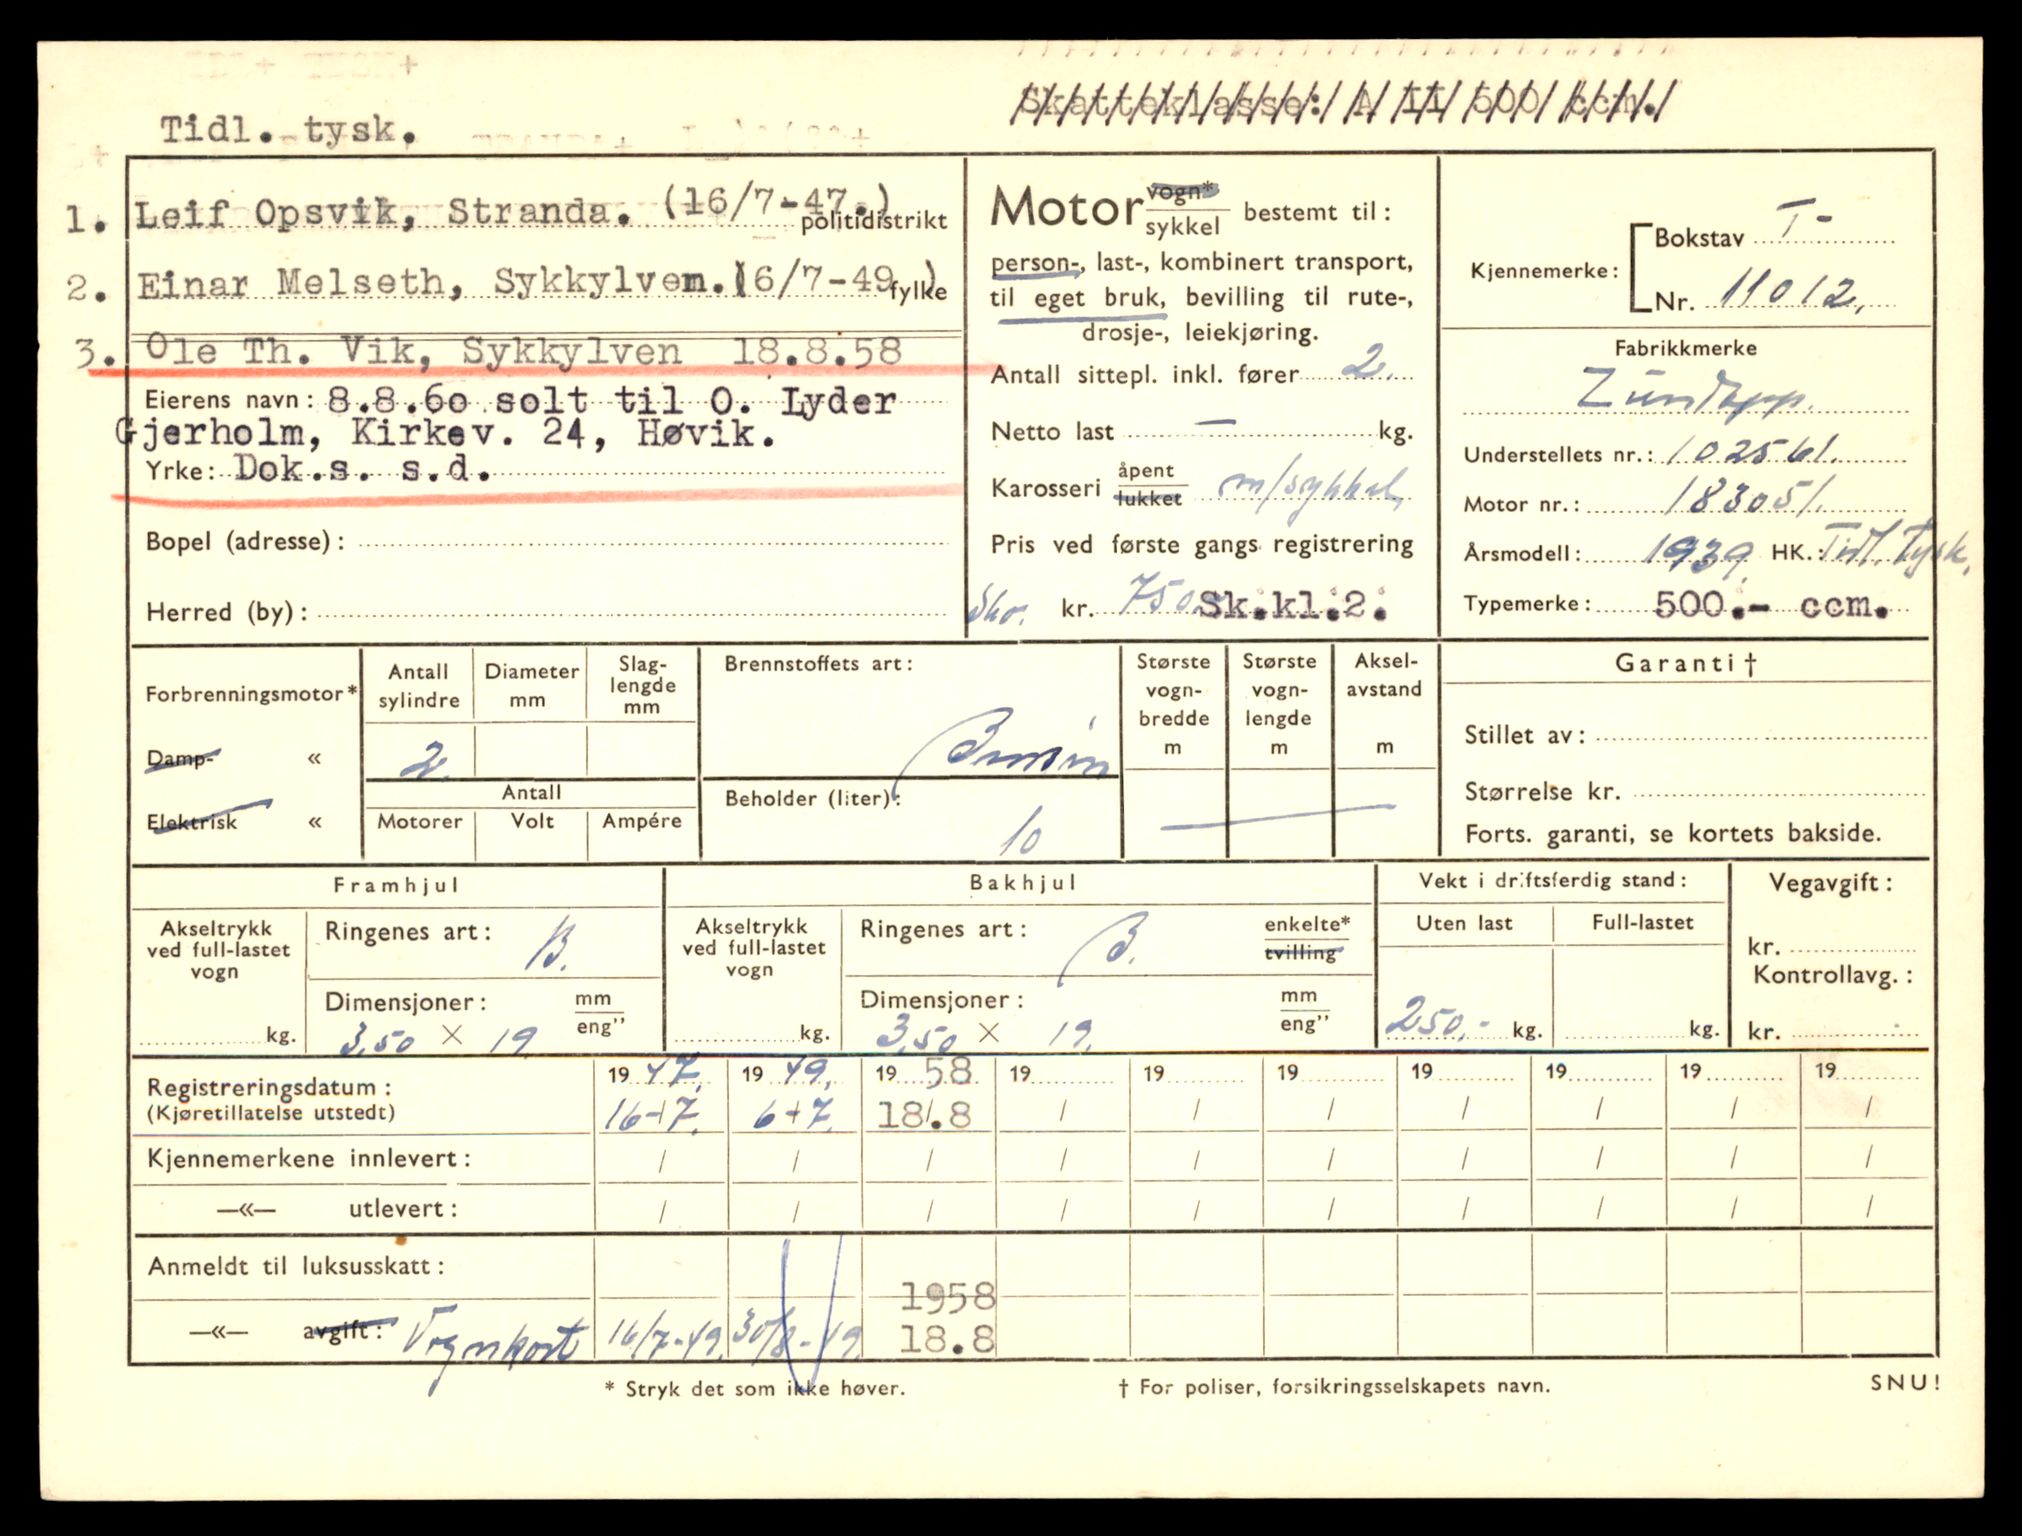 Skatteklasse: A II 500 ccm.
Tidl. tysk.
1. Leif Opsvik, Stranda. (16/7-47.) politidistrikt
2. Einar Melseth, Sykkylven. (6/7-49) fylke
3. Ole Th. Vik, Sykkylven 18.8.58
Eierens navn: 8.8.60 solt til O. Lyder
Gjerholm, Kirkev. 24, Høvik.
Yrke: Dok.s. s.d.
Bopel (adresse):
Herred (by):
Motor vogn* / sykkel bestemt til:
person-, last-, kombinert transport,
til eget bruk, bevilling til rute-,
drosje-, leiekjøring.
Antall sittepl. inkl. fører 2.
Netto last — kg.
Karosseri åpent / lukket m/sykkel,
Pris ved første gangs registrering
Skv. kr. 750 Sk.kl.2.
Kjennemerke: Bokstav T-
Nr. 11012,
Fabrikkmerke
Zündapp.
Understellets nr.: 102561.
Motor nr.: 183051.
Årsmodell: 1939. HK.: Tidl. tysk.
Typemerke: 500.- ccm.
Forbrenningsmotor*
Damp- «
Elektrisk «
Antall sylindre
Diameter mm
Slag-lengde mm
2.
Antall
Motorer Volt Ampére
Brennstoffets art:
Bensin
Beholder (liter):
10
Største vogn-bredde m
Største vogn-lengde m
Aksel-avstand m
Garanti †
Stillet av:
Størrelse kr.
Forts. garanti, se kortets bakside.
Framhjul
Akseltrykk ved full-lastet vogn
kg.
Ringenes art: B.
Dimensjoner: mm / eng"
3,50 × 19.
Bakhjul
Akseltrykk ved full-lastet vogn
kg.
Ringenes art: B. enkelte* / tvilling
Dimensjoner: mm / eng"
3,50 × 19.
Vekt i driftsferdig stand:
Uten last Full-lastet
250,- kg. kg.
Vegavgift:
kr.
Kontrollavg.:
kr.
Registreringsdatum: 19 47. 19 49. 19 58 19 19 19 19 19 19 19
(Kjøretillatelse utstedt) 16/7. 6/7. 18.8 / / / / / / /
Kjennemerkene innlevert: / / / / / / / / / /
—«— utlevert: / / / / / / / / / /
Anmeldt til luksusskatt: 1958
—«— avgift: Vognkort 16/7-49. 30/8-49. 18.8
* Stryk det som ikke høver.
† For poliser, forsikringsselskapets navn.
SNU!